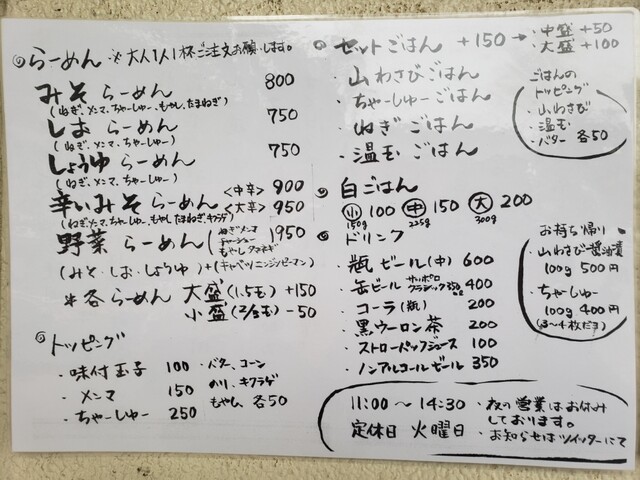 らーめん ※大人1人1杯ご注文お願いします。
みそらーめん 800
(ねぎ、メンマ、ちゃーしゅー、もやし、たまねぎ)
しおらーめん 750
(ねぎ、メンマ、ちゃーしゅー)
しょうゆらーめん 750
(ねぎ、メンマ、ちゃーしゅー)
辛いみそらーめん <中辛> 900
<大辛> 950
(ねぎ、メンマ、ちゃーしゅー、もやし、たまねぎ、キクラゲ)
野菜らーめん 950
(みそ・しお・しょうゆ)+(キャベツ、ニンジン、ピーマン)
※各らーめん 大盛(1.5玉) +150
小盛(2/3玉) -50
トッピング
・味付玉子 100
・メンマ 150
・ちゃーしゅー 250
・バター、コーン
のり、キクラゲ
もやし 各50
セットごはん +150 → ・中盛 +50
・大盛 +100
・山わさびごはん
・ちゃーしゅーごはん
・ねぎごはん
・温玉ごはん
ごはんの
トッピング
・山わさび
・温玉
・バター 各50
白ごはん
小 100 中 150 大 200
150g 225g 300g
ドリンク
・瓶ビール(中) 600
・缶ビール サッポロクラシック350 400
・コーラ(瓶) 200
・黒ウーロン茶 200
・ストローパックジュース 100
・ノンアルコールビール 350
お持ち帰り
・山わさび醤油漬
100g 500円
・ちゃーしゅー
100g 400円
(3〜4枚だョ)
11:00〜14:30
定休日 火曜日
・夜の営業はお休み
しております。
・お知らせはツイッターにて